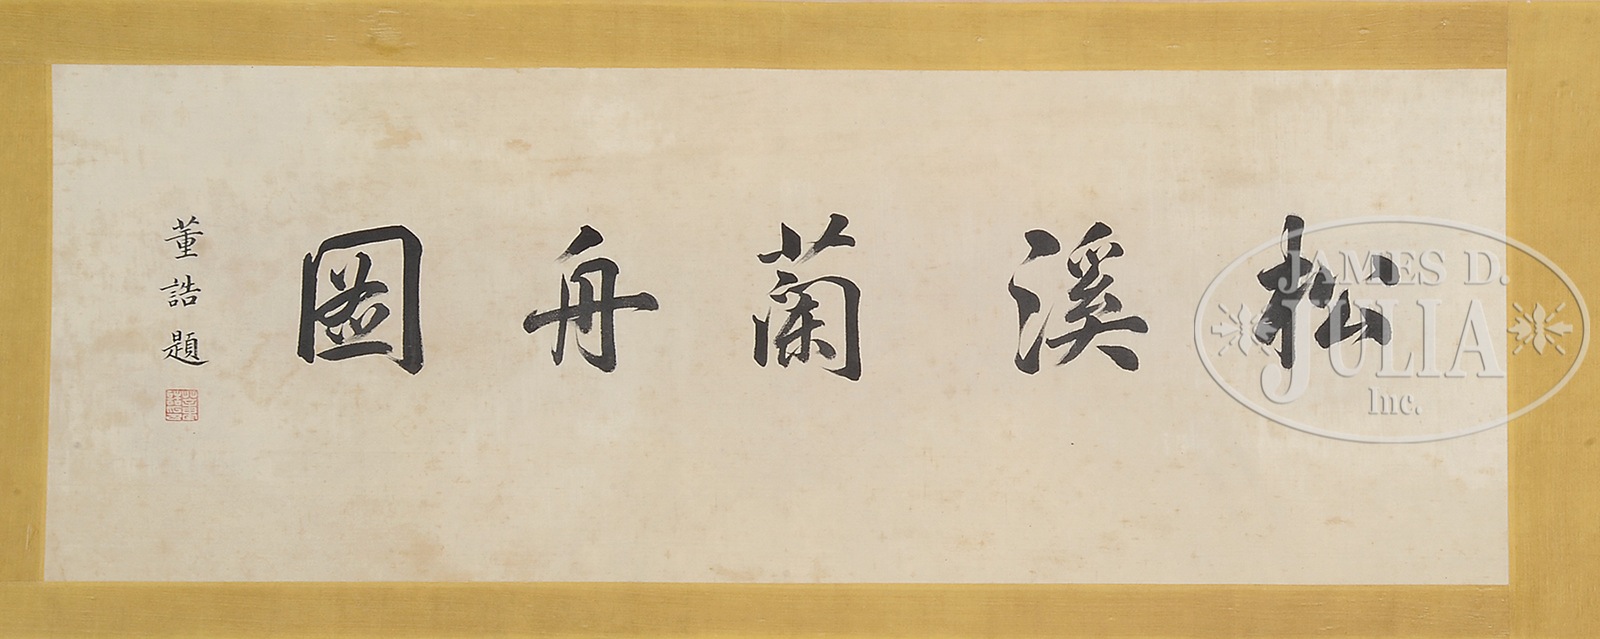 松溪蘭舟圖
董誥題
JAMES D.
JULIA
Inc.